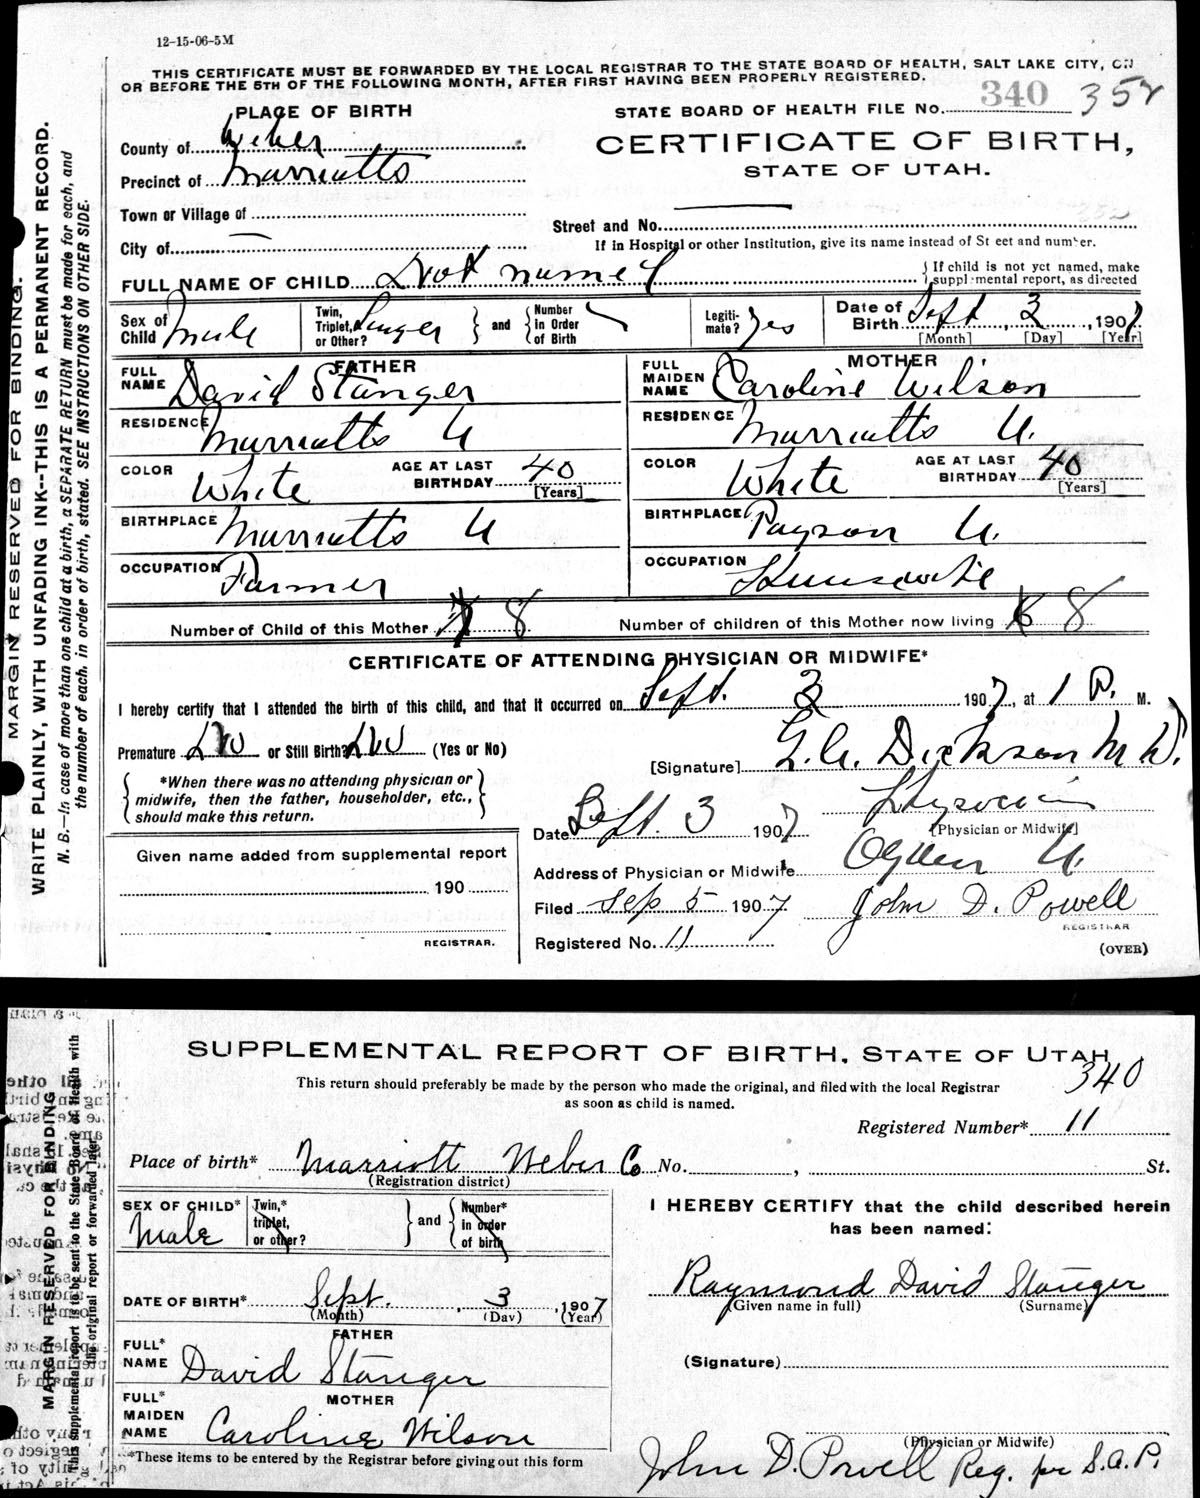 12-15-06-5M
THIS CERTIFICATE MUST BE FORWARDED BY THE LOCAL REGISTRAR TO THE STATE BOARD OF HEALTH, SALT LAKE CITY, ON
OR BEFORE THE 5TH OF THE FOLLOWING MONTH, AFTER FIRST HAVING BEEN PROPERLY REGISTERED.
PLACE OF BIRTH
STATE BOARD OF HEALTH FILE No. 340 352
County of Weber
CERTIFICATE OF BIRTH,
STATE OF UTAH.
Precinct of Marriatts
Town or Village of
Street and No.
City of
If in Hospital or other Institution, give its name instead of St eet and number.
FULL NAME OF CHILD Not named
If child is not yet named, make
supplemental report, as directed
Sex of Child Male
Twin, Triplet, or Other?
and
Number In Order of Birth
Legiti-mate? Yes
Date of Birth Sept 3, 1907
[Month] [Day] [Year]
FATHER
MOTHER
FULL NAME David Stanger
FULL MAIDEN NAME Caroline Wilson
RESIDENCE Marriatts U
RESIDENCE Marriatts U.
COLOR White
AGE AT LAST BIRTHDAY 40 [Years]
COLOR White
AGE AT LAST BIRTHDAY 40 [Years]
BIRTHPLACE Marriatts U
BIRTHPLACE Payson U.
OCCUPATION Farmer
OCCUPATION Housewife
Number of Child of this Mother 7 8
Number of children of this Mother now living 6 8
CERTIFICATE OF ATTENDING PHYSICIAN OR MIDWIFE*
I hereby certify that I attended the birth of this child, and that it occurred on Sept. 3 1907, at 1 P. M.
Premature No or Still Birth? No (Yes or No)
[Signature] Dickson M D.
*When there was no attending physician or
midwife, then the father, householder, etc.,
should make this return.
Physician
[Physician or Midwife]
Date Sept. 3 1907
Address of Physician or Midwife Ogden U.
Given name added from supplemental report
190
REGISTRAR.
Filed Sep 5 1907 John D. Powell
REGISTRAR
Registered No. 11
(OVER)
MARGIN RESERVED FOR BINDING.
WRITE PLAINLY, WITH UNFADING INK--THIS IS A PERMANENT RECORD.
N. B.—In case of more than one child at a birth, a SEPARATE RETURN must be made for each, and
the number of each, in order of birth, stated. SEE INSTRUCTIONS ON OTHER SIDE.
SUPPLEMENTAL REPORT OF BIRTH, STATE OF UTAH
340
This return should preferably be made by the person who made the original, and filed with the local Registrar
as soon as child is named.
Registered Number* 11
Place of birth* Marriott Weber Co No. , St.
(Registration district)
SEX OF CHILD* Male
Twin,* triplet, or other?
and
Number* in order of birth
I HEREBY CERTIFY that the child described herein
has been named:
Raymond David Stanger
(Given name in full) (Surname)
DATE OF BIRTH* Sept. 3, 1907
(Month) (Day) (Year)
FATHER
FULL* NAME David Stanger
(Signature)
MOTHER
FULL* MAIDEN NAME Caroline Wilson
(Physician or Midwife)
*These items to be entered by the Registrar before giving out this form
John D. Powell Reg. per S.A.P.
MARGIN RESERVED FOR BINDING
This supplemental report is to be sent to the State Board of Health with
the original report or forwarded later